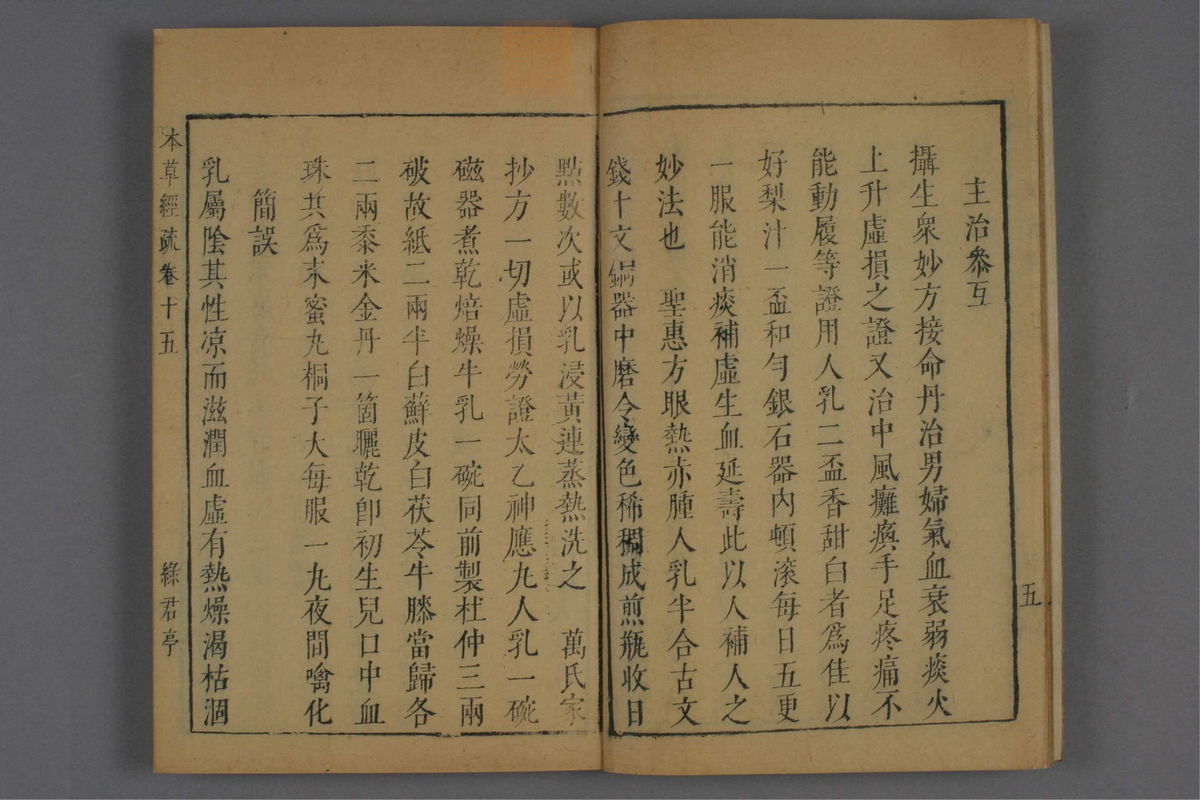 五
主治參互
攝生衆妙方接命丹治男婦氣血衰弱痰火
上升虛損之證又治中風癱瘓手足疼痛不
能動履等證用人乳二盃香甜白者爲佳以
好梨汁一盃和勻銀石器內頓滚每日五更
一服能消痰補虛生血延壽此以人補人之
妙法也　聖惠方眼熱赤腫人乳半合古文
錢十文銅器中磨令變色稀稠成煎瓶收日
點數次或以乳浸黃連蒸熱洗之　萬氏家
抄方一切虛損勞證太乙神應丸人乳一碗
磁器煮乾焙燥牛乳一碗同前製杜仲三兩
破故紙二兩半白蘚皮白茯苓牛膝當歸各
二兩黍米金丹一箇曬乾卽初生兒口中血
珠共爲末蜜丸桐子大每服一丸夜間噙化
簡誤
乳屬陰其性凉而滋潤血虛有熱燥渴枯涸
本草經疏卷十五
綠君亭